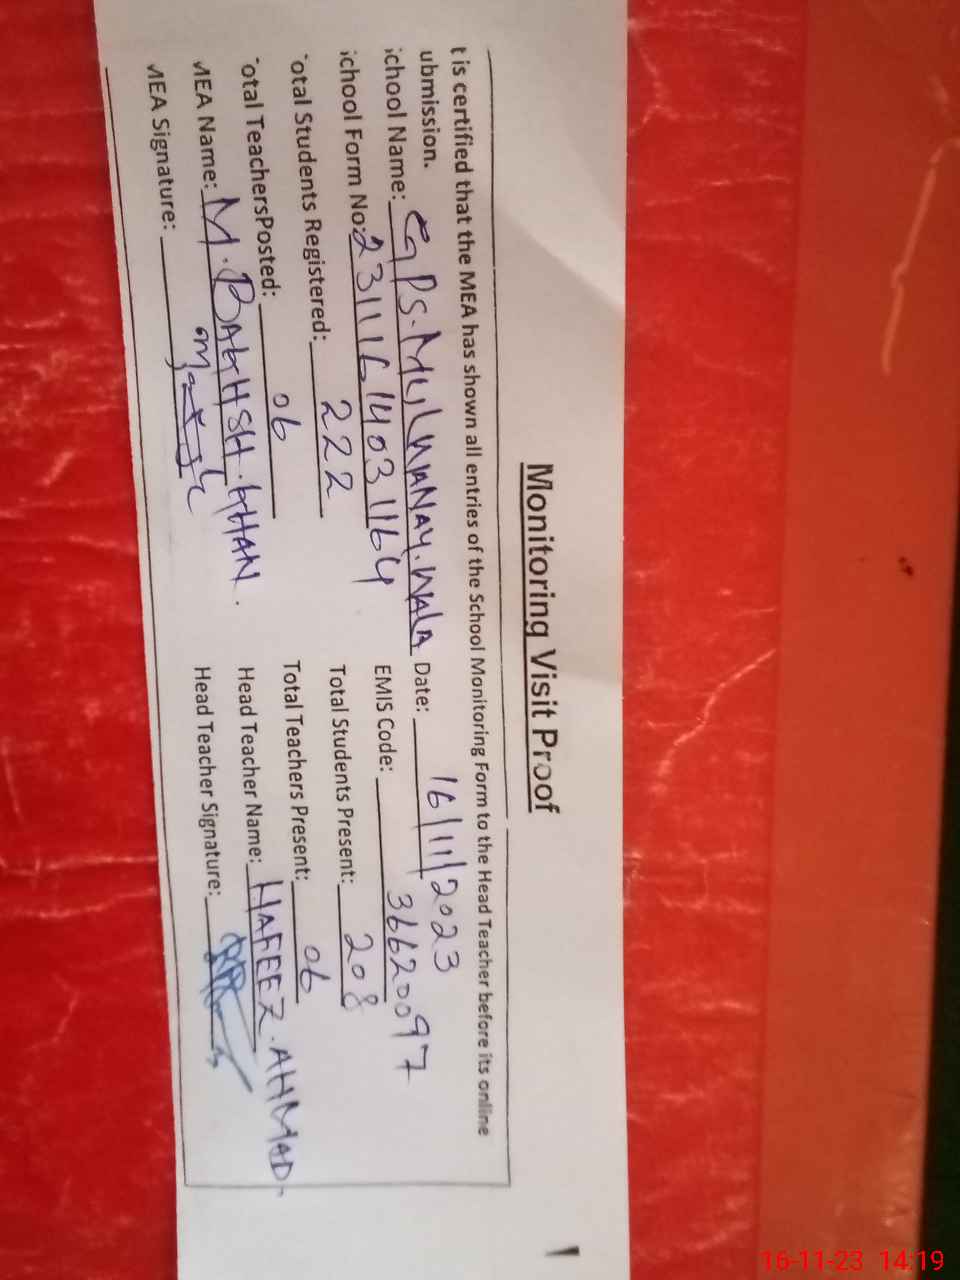 Monitoring Visit Proof
t is certified that the MEA has shown all entries of the School Monitoring Form to the Head Teacher before its online
ubmission.
ichool Name: GPS. MULWANAY. WALA Date: 16/11/2023
ichool Form No: 23111614031164 EMIS Code: 36620097
otal Students Registered: 222 Total Students Present: 208
otal TeachersPosted: 06 Total Teachers Present: 06
MEA Name: M. BAKHSH. KHAN. Head Teacher Name: HAFEEZ. AHMAD.
MEA Signature: Head Teacher Signature:
16-11-23 14:19